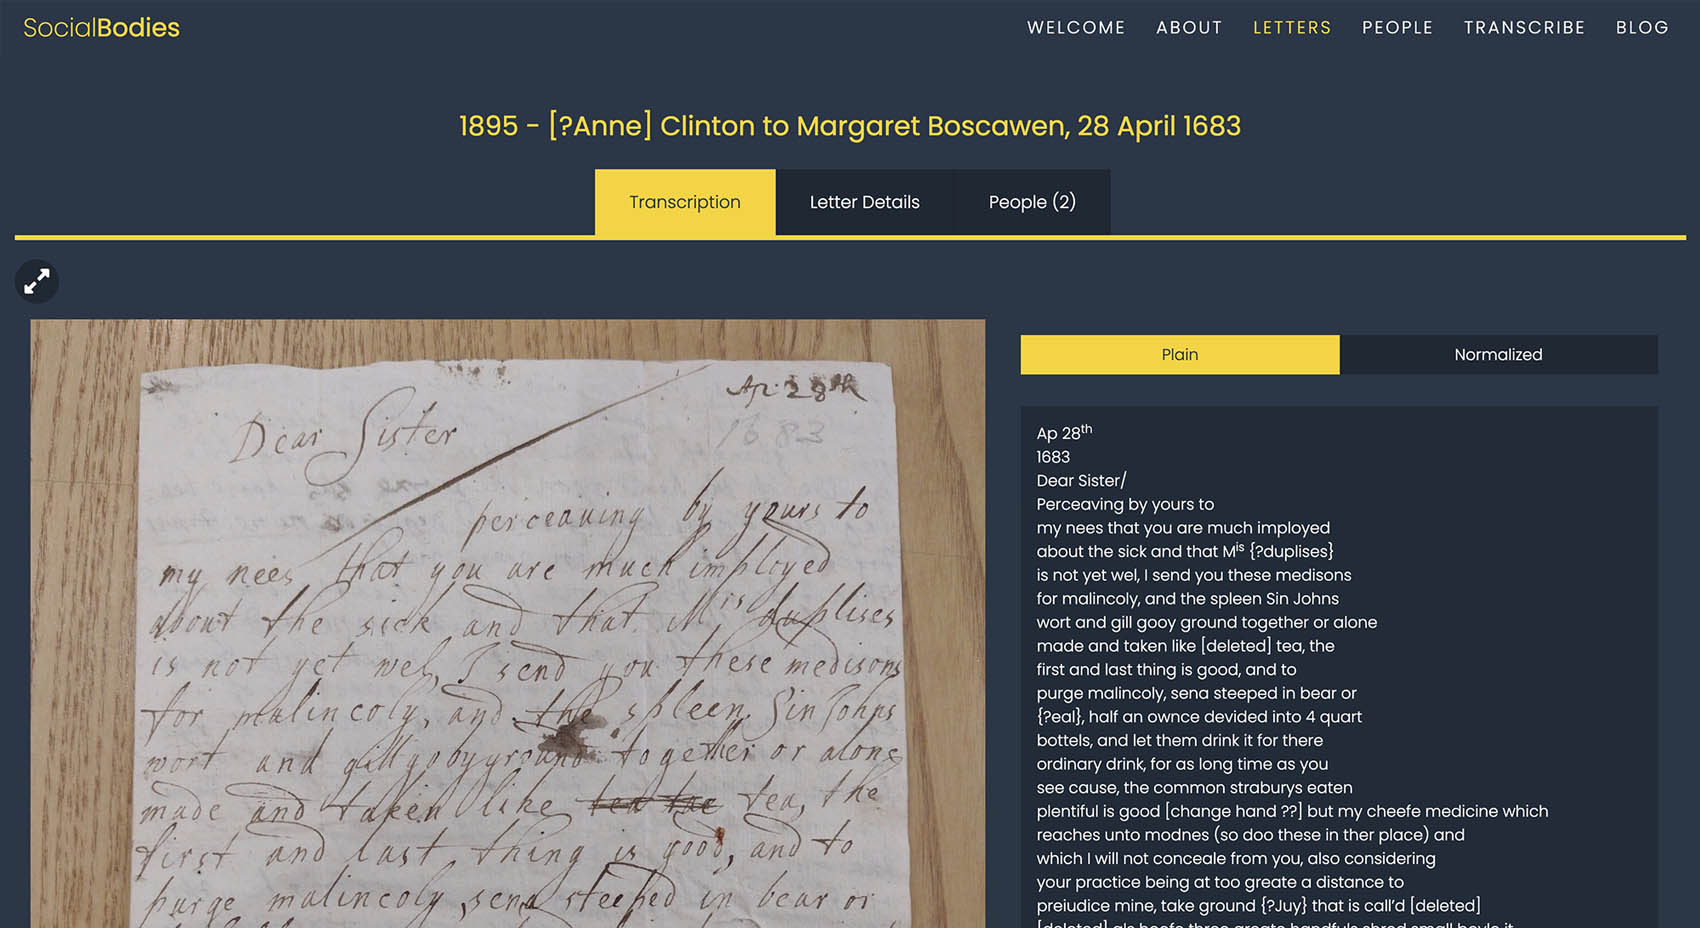 SocialBodies
WELCOME ABOUT LETTERS PEOPLE TRANSCRIBE BLOG
1895 - [?Anne] Clinton to Margaret Boscawen, 28 April 1683
Transcription Letter Details People (2)
Ap: 28th
1683
Dear Sister
perceaving by yours to
my nees that you are much imployed
about the sick and that Mis duplises
is not yet wel, I send you these medisons
for malincoly, and the spleen Sin Johns
wort and gill gobyground together or alone
made and taken like tea, the
first and last thing is good, and to
purge malincoly, sena steeped in bear or
Plain Normalized
Ap 28th
1683
Dear Sister/
Perceaving by yours to
my nees that you are much imployed
about the sick and that Mis {?duplises}
is not yet wel, I send you these medisons
for malincoly, and the spleen Sin Johns
wort and gill gooy ground together or alone
made and taken like [deleted] tea, the
first and last thing is good, and to
purge malincoly, sena steeped in bear or
{?eal}, half an ownce devided into 4 quart
bottels, and let them drink it for there
ordinary drink, for as long time as you
see cause, the common straburys eaten
plentiful is good [change hand ??] but my cheefe medicine which
reaches unto modnes (so doo these in ther place) and
which I will not conceale from you, also considering
your practice being at too greate a distance to
preiudice mine, take ground {?Juy} that is call'd [deleted]
[deleted] als hoofe three greate handfuls shred small boyle it